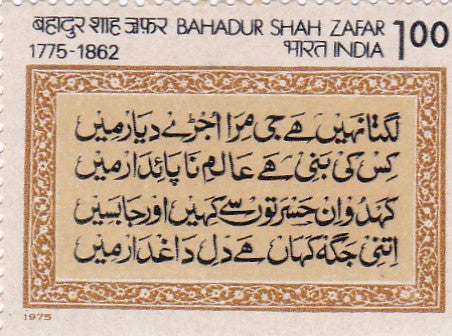 बहादुर शाह ज़फ़र BAHADUR SHAH ZAFAR
1775-1862 भारत INDIA 100
لگتا نہیں ہے جی مرا اجڑے دیار میں
کس کی بنی ہے عالمِ ناپائدار میں
کہدو ان حسرتوں سے کہیں اور جا بسیں
اتنی جگہ کہاں ہے دلِ داغدار میں
1975